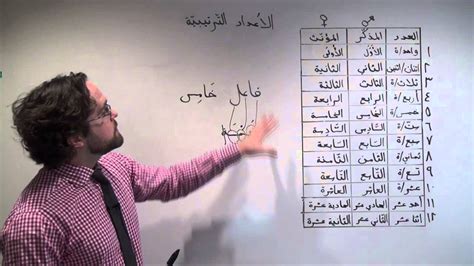 الأعداد التّرتيبيّة
♂ ♀
العدد المذكّر المؤنّث
١ واحد/ة الأوّل الأولى
٢ اثنان/اثنين الثاني الثانية
٣ ثلاث/ة الثالث الثالثة
٤ أربع/ة الرابع الرابعة
٥ خمس/ة الخامس الخامسة
٦ ستّ/ة السّادس السّادسة
٧ سبع/ة السّابع السّابعة
٨ ثمان/ية الثامن الثّامنة
٩ تسع/ة التّاسع التّاسعة
١٠ عشر/ة العاشر العاشرة
١١ أحد عشر الحادي عشر الحادية عشرة
١٢ اثنا عشر الثاني عشر الثانية عشرة
فاعل خامس